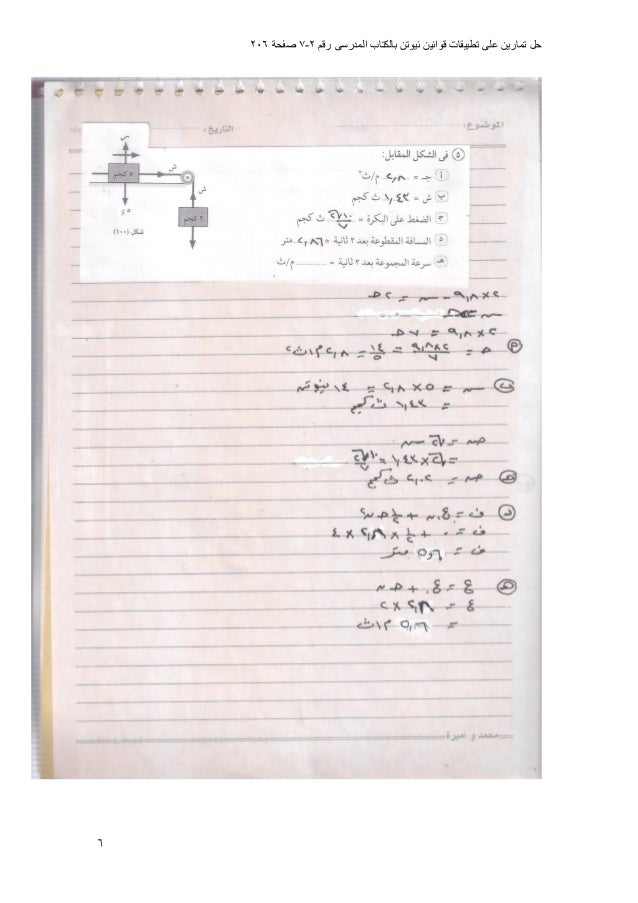 حل تمارين على تطبيقات قوانين نيوتن بالكتاب المدرسى رقم ٢-٧ صفحة ٢٠٦
الموضوع: التاريخ:
٥ فى الشكل المقابل:
أ جـ = ٢,٨ م/ث٢
ب ش = ١,٤٣ ث كجم
ج الضغط على البكرة = ١٠√٢/٧ ث كجم
د المسافة المقطوعة بعد ٢ ثانية = متر
هـ سرعة المجموعة بعد ٢ ثانية = م/ث
ر
٥ كجم
ش
ش
٢ كجم
٥ ء
شكل (١٠٠)
٢×٩,٨ - س = ٢ حـ
٢×٩,٨ = ٧ حـ
حـ = ٢×٩,٨/٧ = ١٤/٥ = ٢,٨ م/ث٢
ب س = ٥ × ٢,٨ = ١٤ نيوتن
= ١,٤٣ ث كجم
ضـ = √٢ س
= √٢ × ١,٤٣ = ١٠√٢/٧
ضـ = ٢,٠٢ ث كجم
د ف = ع. ن + ١/٢ حـ ن٢
ف = ٠ + ١/٢ × ٢,٨ × ٤
ف = ٥,٦ متر
هـ ع = ع. + حـ ن
ع = ٢,٨ × ٢
= ٥,٦ م/ث
محمد و اميرة
٦